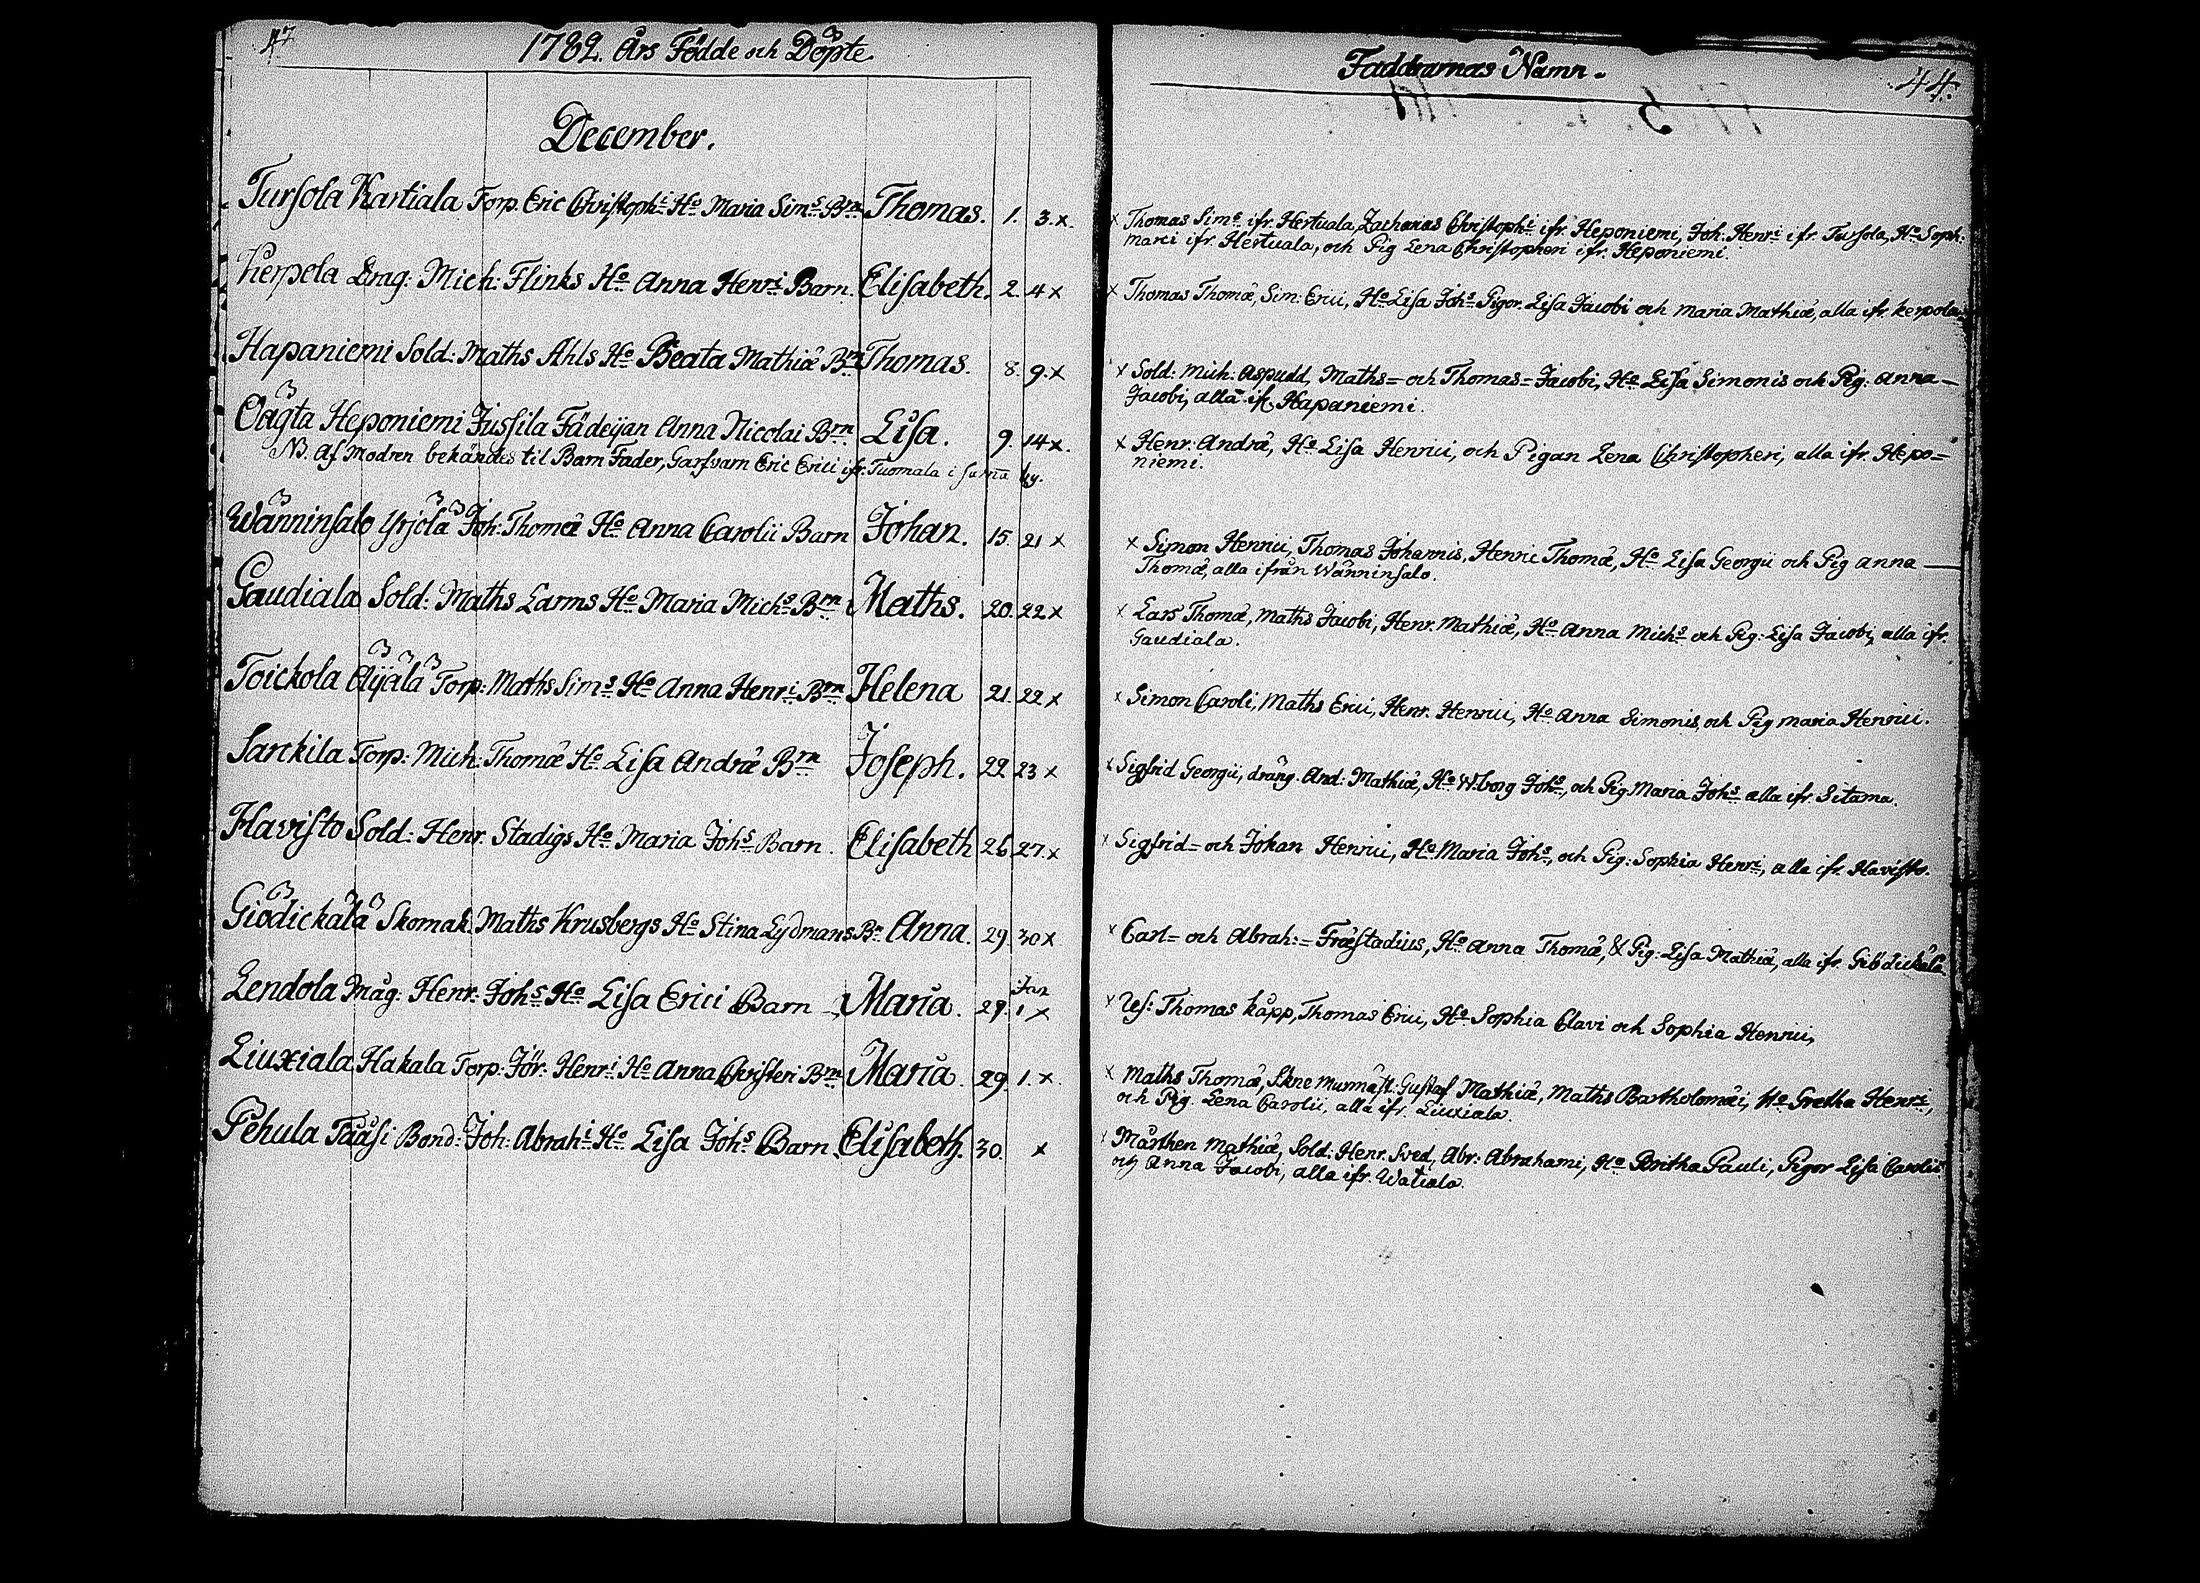 1782. Års Födde och Döpte
December.
Tursola Kartiala Torp. Eric Christophi Ho Maria Sims Brn Thomas. 1. 3. x.
Kerpola Drag: Mich: Flinks Ho Anna Henri Barn. Elisabeth. 2. 4 x
Hapaniemi Sold: Maths Ahls Ho Beata Mathiæ Brn Thomas. 8. 9. x
Heponiemi Jussila Anna Nicolai Brn Lisa. 9. 14 x.
NB. Af Modren bekändes til Barn Fader, Garfvarn Eric Erici ifr. Tuomala i sama by.
Wänninsalo Yrjölä Joh: Thomæ Ho Anna Carolii Barn Johan. 15. 21 x
Gaudiala Sold: Maths Larms Ho Maria Michs Brn Maths. 20. 22 x
Toickola Äijälä Torp: Maths Sims Ho Anna Henri Brn Helena 21. 22 x
Sarckila Torp: Mich: Thomæ Ho Lisa Andræ Brn Joseph. 22 23 x
Havisto Sold: Henr. Stadigs Ho Maria Johs Barn. Elisabeth 26 27. x
Giödickälä Skomak. Maths Krusbergs Ho Stina Lydmans Bn Anna. 29. 30 x
Jan
Lendola Måg: Henr. Johs Ho Lisa Erici Barn Maria. 29. 1 x
Liuxiala Hakala Torp: Jör: Henri Ho Anna Christeri Brn Maria. 29. 1. x.
Pehula Bond: Joh: Abrahi Ho Lisa Johs Barn Elisabeth. 30. x
Faddrarnas Namn.
44.
x Thomas Sims ifr. Hertuala, Zacharias Christophi ifr. Heponiemi, Joh. Henri ifr. Tursola, Ho Soph:
Marci ifr. Hertuala, och Pig Lena Christopheri ifr. Heponiemi.
x Thomas Thomæ, Sim: Erici, Ho Lisa Johs Pigor. Lisa Jacobi och Maria Mathiæ, alla ifr. Kerpola.
x Sold: Mich: Aspudd, Maths= och Thomas= Jacobi, Ho Lisa Simonis och Pig: Anna
Jacobi, alla ifr. Hapaniemi.
x Henr: Andræ, Ho Lisa Henrici, och Pigan Lena Christopheri, alla ifr. Hepo=
niemi.
x Simon Henrici, Thomas Johannis, Henric Thomæ, Ho Lisa Georgii och Pig Anna
Thomæ, alla ifrån Wänninsalo.
x Lars Thomæ, Maths Jacobi, Henr. Mathiæ, Ho Anna Michs och Pig: Lisa Jacobi, alla ifr.
Gaudiala.
x Simon Caroli, Maths Erici, Henr. Henrici, Ho Anna Simonis, och Pig Maria Henrici.
x Sigfrid Georgii, dräng. And: Mathiæ, Ho Wborg Johs, och Pig Maria Johs alla ifr. Sitama.
x Sigfrid= och Johan Henrici, Ho Maria Johs, och Pig: Sophia Henri, alla ifr. Havisto.
x Carl= och Abrah:= Fræstadius, Ho Anna Thomæ, & Pig: Lisa Mathiæ, alla ifr. Giödickälä
x Thomas Käpp, Thomas Erici, Ho Sophia Clavi och Sophia Henrici,
x Maths Thomæ, Gustaf Mathiæ, Maths Bartholomæi, Ho Gretha Henri,
och Pig. Lena Carolii, alla ifr. Liuxiala.
Mårthen Mathiæ, Sold: Henr. Sved, Abr: Abrahami, Ho Britha Pauli, Pigor Lisa Carolii
och Anna Jacobi, alla ifr. Watiala.